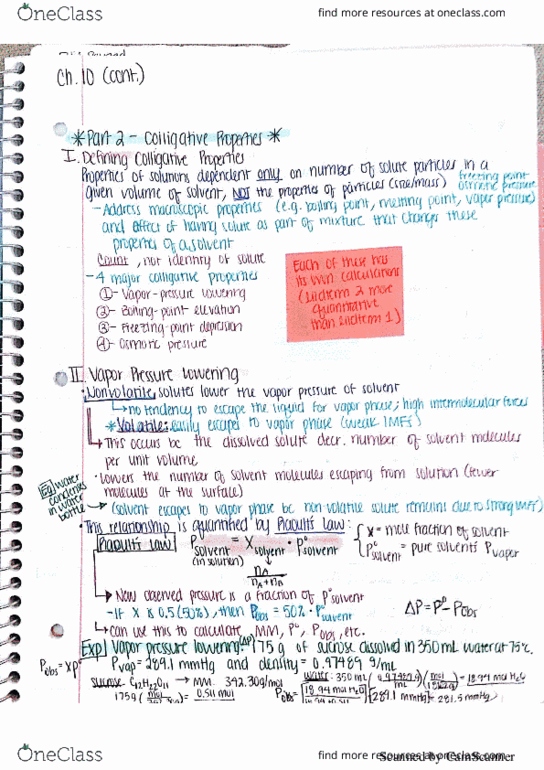 OneClass
find more resources at oneclass.com
Ch. 10 (cont.)
*Part 2 - Colligative Properties *
I. Defining Colligative Properties
Properties of solutions dependent only on number of solute particles in a
given volume of solvent, NOT the properties of particles (size/mass)
freezing point
osmotic pressure
- Address macroscopic properties (e.g. boiling point, melting point, vapor pressure)
and effect of having solute as part of mixture that changes these
properties of a solvent
Count, not identity of solute
- 4 major colligative properties
① - Vapor-pressure lowering
② - Boiling-point elevation
③ - Freezing-point depression
④ - Osmotic pressure
Each of these has
its own calculations
(midterm 2 more
quantitative
than midterm 1)
II. Vapor Pressure Lowering
· Nonvolatile solutes lower the vapor pressure of solvent
→ no tendency to escape the liquid for vapor phase; high intermolecular forces
* Volatile: easily escapes to vapor phase (weak IMFs)
→ This occurs bc the dissolved solute decr. number of solvent molecules
per unit volume
· Lowers the number of solvent molecules escaping from solution (fewer
molecules at the surface)
Eg water
condenses
in water
bottle
→ (solvent escapes to vapor phase bc non-volatile solute remains due to strong IMFs)
· This relationship is quantified by Raoult's law:
Raoult's law
P solvent (in solution) = X solvent · P° solvent
{ X = mole fraction of solvent
P° solvent = pure solvent's P vapor
nA / nA + nB
→ Now observed pressure is a fraction of P° solvent
- If X is 0.5 (50%), then Pobs = 50% · P° solvent
ΔP = P° - Pobs
→ Can use this to calculate MM, P°, Pobs, etc.
Exp Vapor pressure lowering (ΔP) 175 g of sucrose dissolved in 350 mL water at 75°C.
Pobs = XP°
Pvap = 289.1 mmHg and density = 0.97489 g/mL
sucrose: C12H22O11 → MM: 342.30 g/mol
water: 350 mL (0.97489 g / mL) (mol / 18.02g) = 18.94 mol H2O
175g (mol / = 0.511 mol
Pobs = 18.94 mol H2O [289.1 mmHg] = 281.5 mmHg
OneClass
find more resources at oneclass.com
Scanned by CamScanner